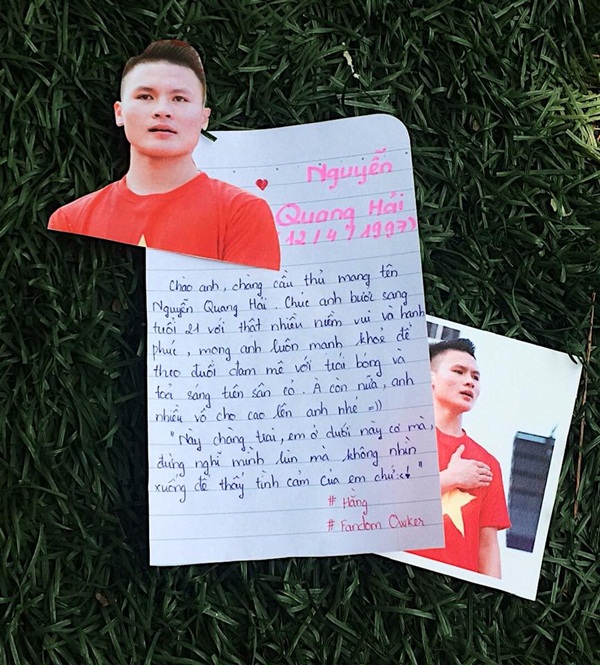 Nguyễn
Quang Hải
(12/4/1997)
Chào anh, chàng cầu thủ mang tên
Nguyễn Quang Hải. Chúc anh bước sang
tuổi 21 với thật nhiều niềm vui và hạnh
phúc, mong anh luôn mạnh khoẻ để
theo đuổi đam mê với trái bóng và
toả sáng trên sân cỏ. À còn nữa, anh
nhiều vô cho cao lên anh nhé =))
"Này chàng trai, em ở dưới này cơ mà,
đừng nghĩ mình lùn mà không nhìn
xuống để thấy tình cảm của em chứ :<! "
# Hằng
# Fandom Owker